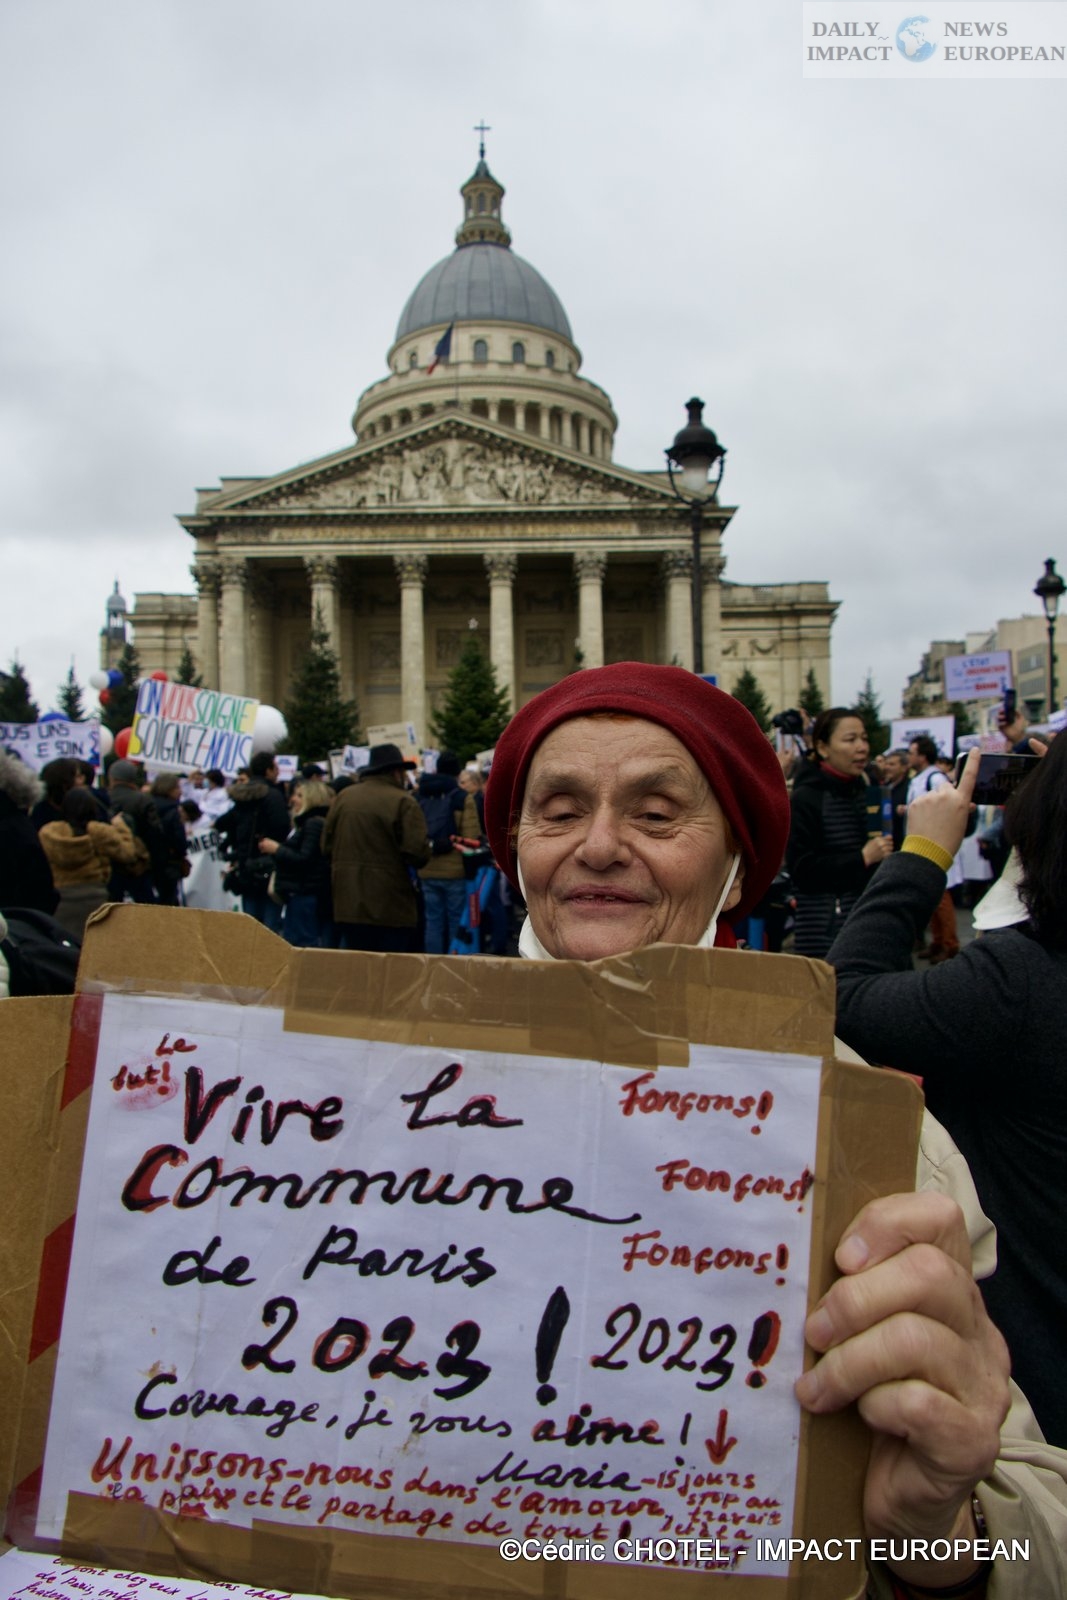 DAILY NEWS
IMPACT EUROPEAN
ON VOUS SOIGNE
SOIGNEZ-NOUS
L'ÉTAT
Le
but!
Vive la
Commune
de Paris
2023!
Fonçons!
Fonçons!
Fonçons!
2023!
Courage, je vous aime! ↓
Maria - 15 jours
Unissons-nous dans l'amour,
la paix et le partage de tout!
stop au
travail
et à la
©Cédric CHOTEL - IMPACT EUROPEAN
de Paris, enfin